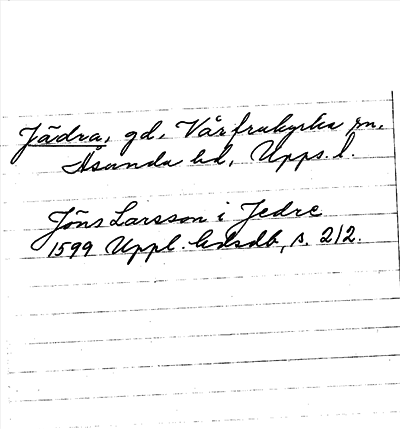 Jädra, gd, Vårfrukyrka sn,
Åsunda hd, Upps. l.
Jöns Larsson i Jedre
1599 Uppl. ldsdb, s. 212.